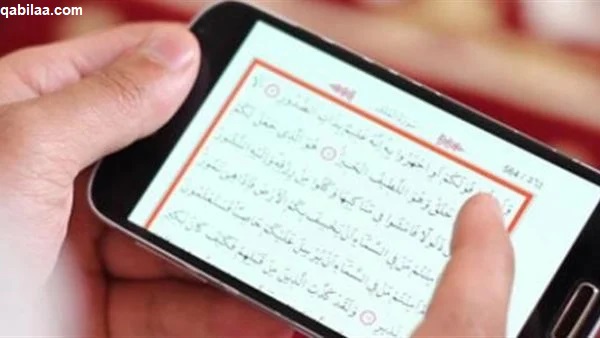 qabilaa.com
سورة الملك
564
قَوْلَكُمْ أَوِ اجْهَرُوا بِهِ إِنَّهُ عَلِيمٌ بِذَاتِ الصُّدُورِ أَلَا
خَلَقَ وَهُوَ اللَّطِيفُ الْخَبِيرُ هُوَ الَّذِي جَعَلَ لَكُمُ
ذَلُولًا فَامْشُوا فِي مَنَاكِبِهَا وَكُلُوا مِنْ رِزْقِهِ وَإِلَيْهِ النُّشُورُ
مَنْ فِي السَّمَاءِ أَنْ يَخْسِفَ بِكُمُ الْأَرْضَ فَإِذَا هِيَ تَمُورُ
أَمِنْتُمْ مَنْ فِي السَّمَاءِ أَنْ يُرْسِلَ عَلَيْكُمْ حَاصِبًا فَسَتَعْلَمُونَ
نَذِيرِ وَلَقَدْ كَذَّبَ الَّذِينَ مِنْ قَبْلِهِمْ فَكَيْفَ كَانَ نَكِيرِ